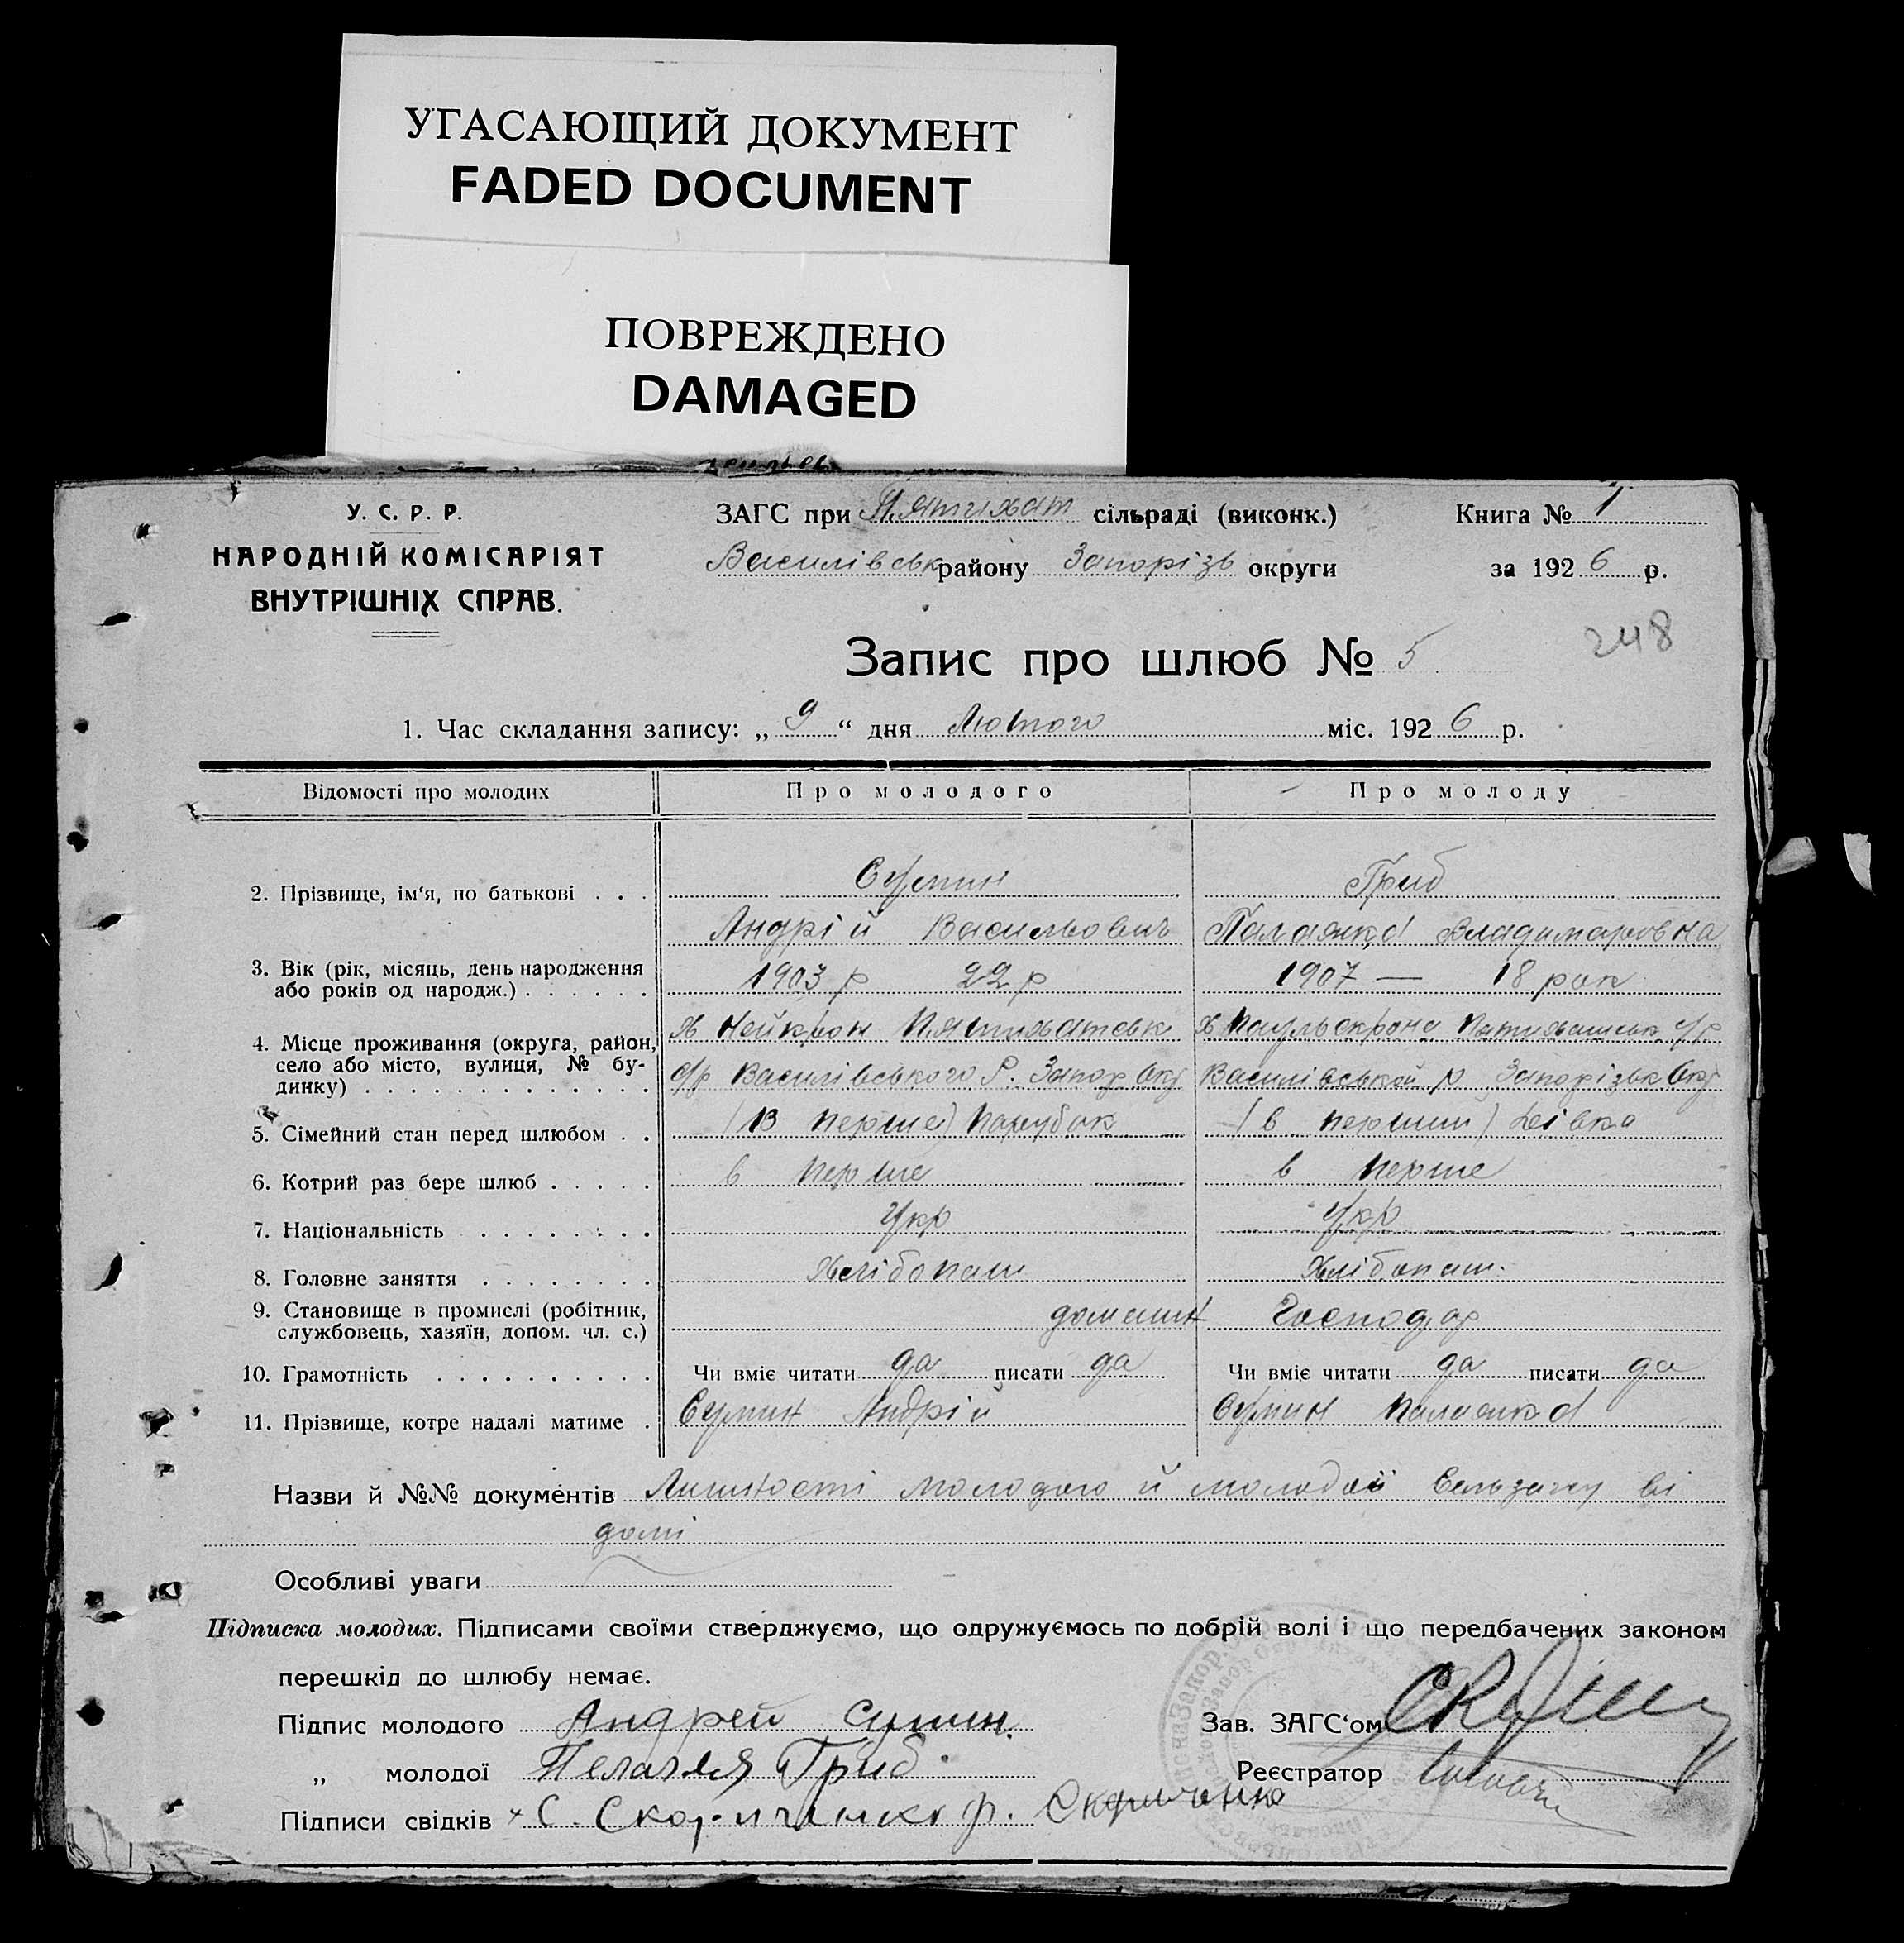 УГАСАЮЩИЙ ДОКУМЕНТ
FADED DOCUMENT
ПОВРЕЖДЕНО
DAMAGED
У. С. Р. Р.
НАРОДНІЙ КОМІСАРІЯТ
ВНУТРІШНІХ СПРАВ.
ЗАГС при Пятихат сільраді (виконк.)
Василівськ району Запорізь округи
Книга № 1
за 1926 р.
248
Запис про шлюб № 5
1. Час складання запису: „ 9 “ дня Лютого міс. 1926 р.
Відомості про молодих Про молодого Про молоду
2. Прізвище, ім'я, по батькові . . . Сумин Гриб
Андрій Васильович Палажка Владимировна
3. Вік (рік, місяць, день народження
або років од народж.) . . . . . . 1903 р 22 р 1907 — 18 рок
4. Місце проживання (округа, район, х Нейкрон Пятихатськ х Паульскрона Пятихатськ с/р
село або місто, вулиця, № бу-
динку) . . . . . . . . . . . . . с/р Василівського Р. Запор Окр Василівськой р Запорізьк Окр
5. Сімейний стан перед шлюбом . . (в перше) парубок (в перший) Дівка
6. Котрий раз бере шлюб . . . . . в перше в перше
7. Національність . . . . . . . . Укр Укр
8. Головне заняття . . . . . . . . Хлібопаш Хлібопаш.
9. Становище в промислі (робітник,
службовець, хазяїн, допом. чл. с.) домашн Господар
10. Грамотність . . . . . . . . . . Чи вміє читати да писати да Чи вміє читати да писати да
11. Прізвище, котре надалі матиме . Сумин Андрій Сумин Палажка
Назви й №№ документів Личности молодого й молодої
домі
Особливі уваги
Підписка молодих. Підписами своїми стверджуємо, що одружуємось по добрій волі і що передбачених законом
перешкід до шлюбу немає.
Підпис молодого Андрей Сумин.
„ молодої Пелагея Гриб
Зав. ЗАГС'ом
Реєстратор
Підписи свідків С.